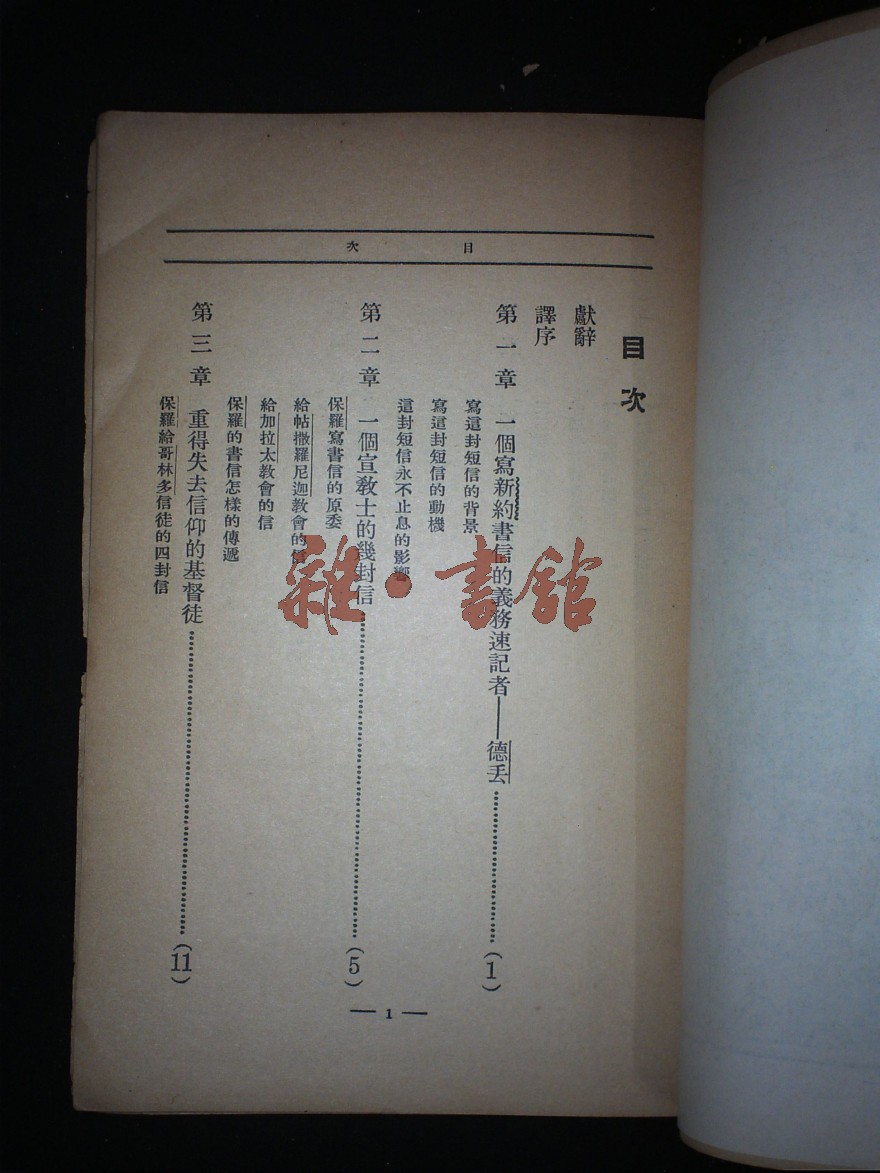 目次
目次
獻辭
譯序
第一章 一個寫新約書信的義務速記者——德丢……(1)
寫這封短信的背景
寫這封短信的動機
這封短信永不止息的影響
第二章 一個宣教士的幾封信……(5)
保羅寫書信的原委
給帖撒羅尼迦教會的信
給加拉太教會的信
保羅的書信怎樣的傳遞
第三章 重得失去信仰的基督徒……(11)
保羅給哥林多信徒的四封信
— 1 —
雜·書館